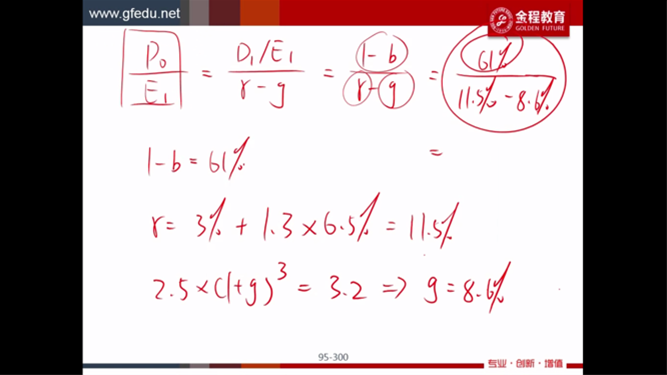 www.gfedu.net
金程教育
GOLDEN FUTURE
P₀/E₁ = D₁/E₁ / r-g = 1-b / r-g = 61% / 11.5%-8.6%
1-b = 61% =
r = 3% + 1.3 × 6.5% = 11.5%
2.5×(1+g)³ = 3.2 => g = 8.6%
95-300
专业·创新·增值